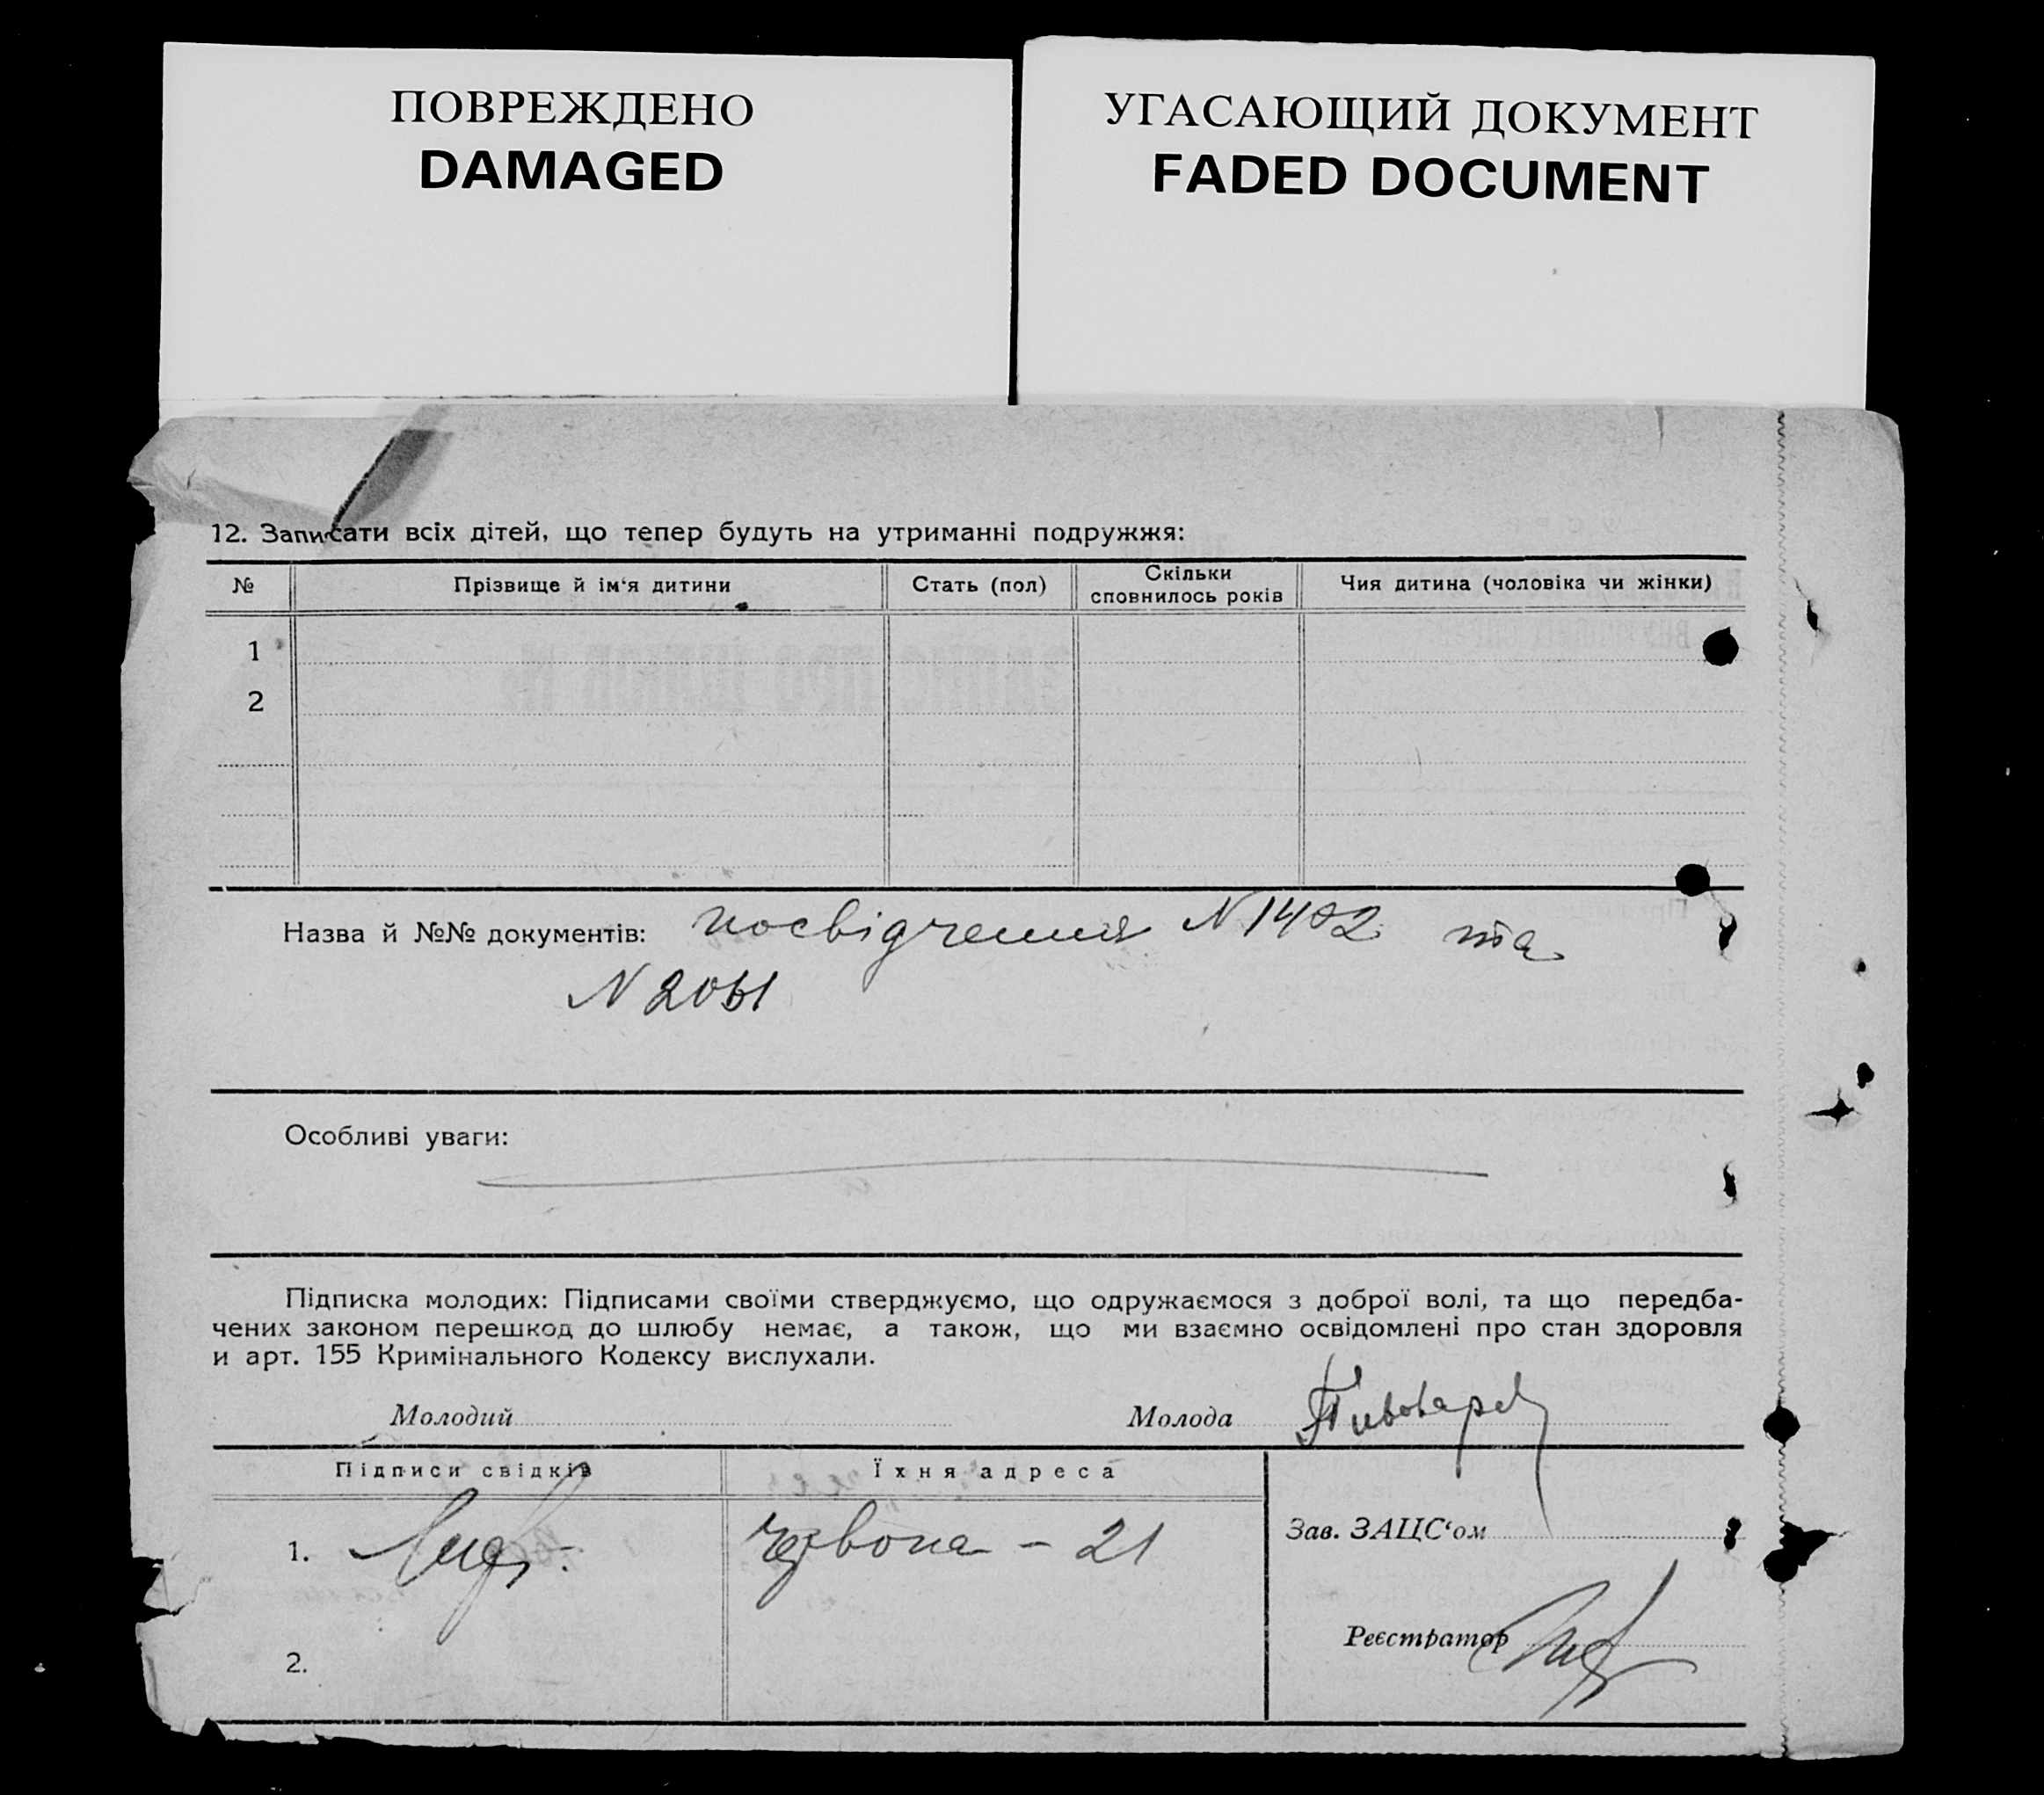 ПОВРЕЖДЕНО
DAMAGED
УГАСАЮЩИЙ ДОКУМЕНТ
FADED DOCUMENT
12. Записати всіх дітей, що тепер будуть на утриманні подружжя:
№ Прізвище й ім‘я дитини Стать (пол) Скільки сповнилось років Чия дитина (чоловіка чи жінки)
1
2
Назва й №№ документів: посвідчення N 1402 та
N 2051
Особливі уваги:
Підписка молодих: Підписами своїми стверджуємо, що одружаємося з доброї волі, та що передба-
чених законом перешкод до шлюбу немає, а також, що ми взаємно освідомлені про стан здоровля
и арт. 155 Кримінального Кодексу вислухали.
Молодий Молода
Підписи свідків Їхня адреса
Зав. ЗАЦС‘ом
1. Червона - 21
Реєстратор
2.